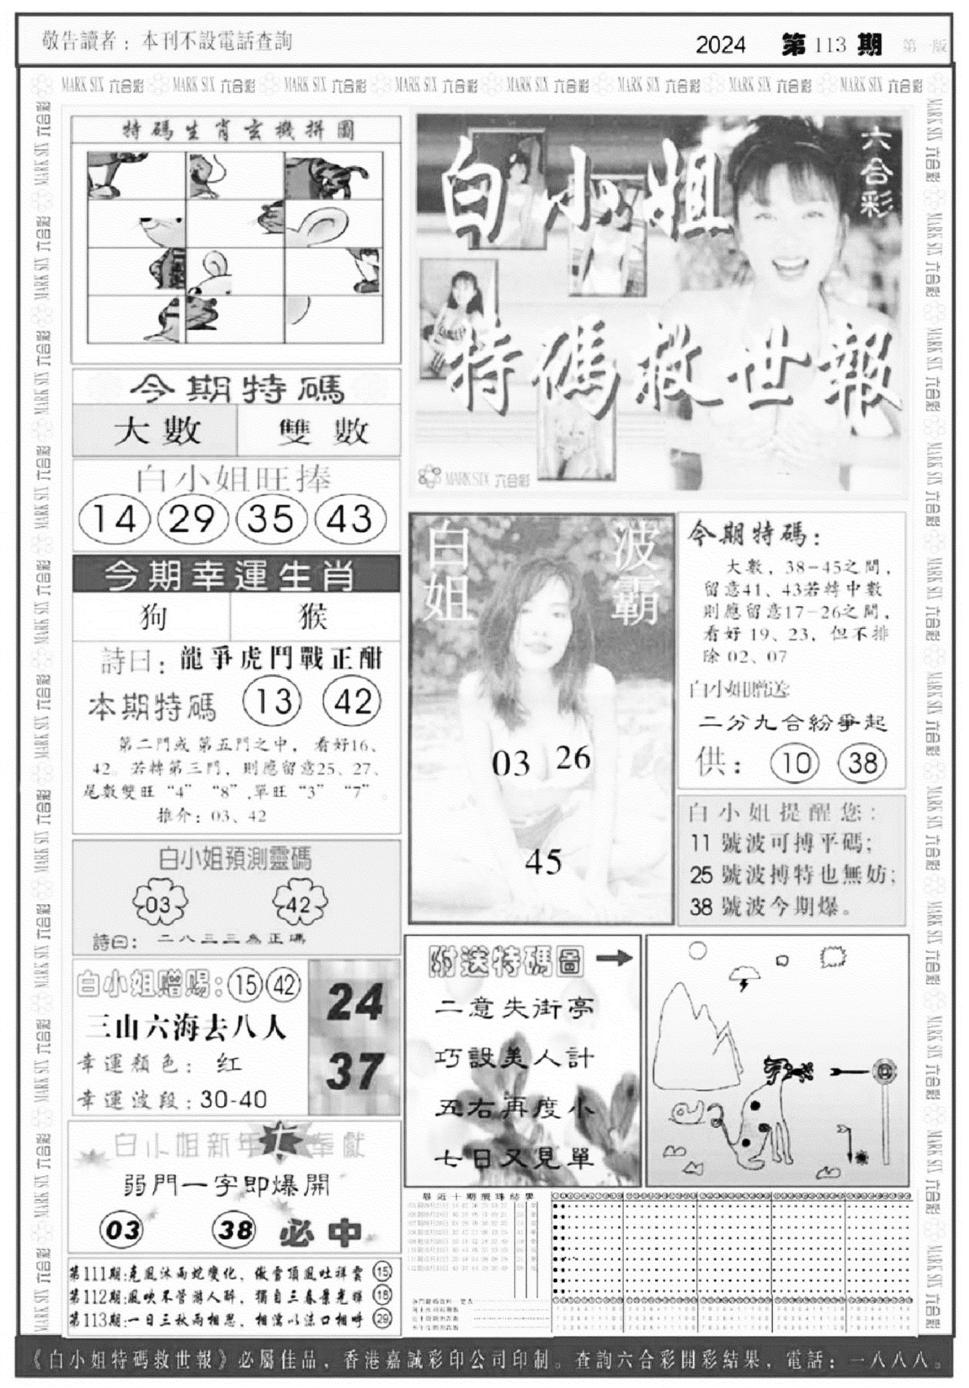 敬告讀者：本刊不設電話查詢
2024 第113期 第一版
MARK SIX 六合彩 MARK SIX 六合彩 MARK SIX 六合彩 MARK SIX 六合彩 MARK SIX 六合彩 MARK SIX 六合彩 MARK SIX 六合彩 MARK SIX 六合彩
特碼生肖玄機拼圖
今期特碼
大數 雙數
白小姐旺捧
14 29 35 43
今期幸運生肖
狗 猴
詩曰：龍爭虎鬥戰正酣
本期特碼 13 42
第二門或第五門之中，看好16、
42。若轉第三門，則應留意25、27、
尾數雙旺“4”“8”,單旺“3”“7”。
推介：03、42
白小姐預測靈碼
03 42
詩曰：二八三三為正碼
白小姐贈賜：15 42
三山六海去八人
幸運顏色：红
幸運波段：30-40
24
37
白小姐新年奉獻
弱門一字即爆開
03 38 必中
第112期:風映不管游人醉，獨自三春景光輝 18
第113期:一日三秋兩相思，相濡以沫口相呼 29
六合彩
白小姐
特碼救世報
MARK SIX 六合彩
白姐 波霸
03 26
45
今期特碼：
大數，38-45之間，
留意41、43若轉中數
則應留意17-26之間，
看好19、23，但不排
除02、07
白小姐贈送:
二分九合紛爭起
供：10 38
白小姐提醒您：
11 號波可搏平碼；
25 號波搏特也無妨；
38 號波今期爆。
附送特碼圖
二意失街亭
巧設美人計
五右再度小
七日又見單
最近十期攪珠結果
《白小姐特碼救世報》必屬佳品，香港嘉誠彩印公司印制。查詢六合彩開彩結果，電話：一八八八。